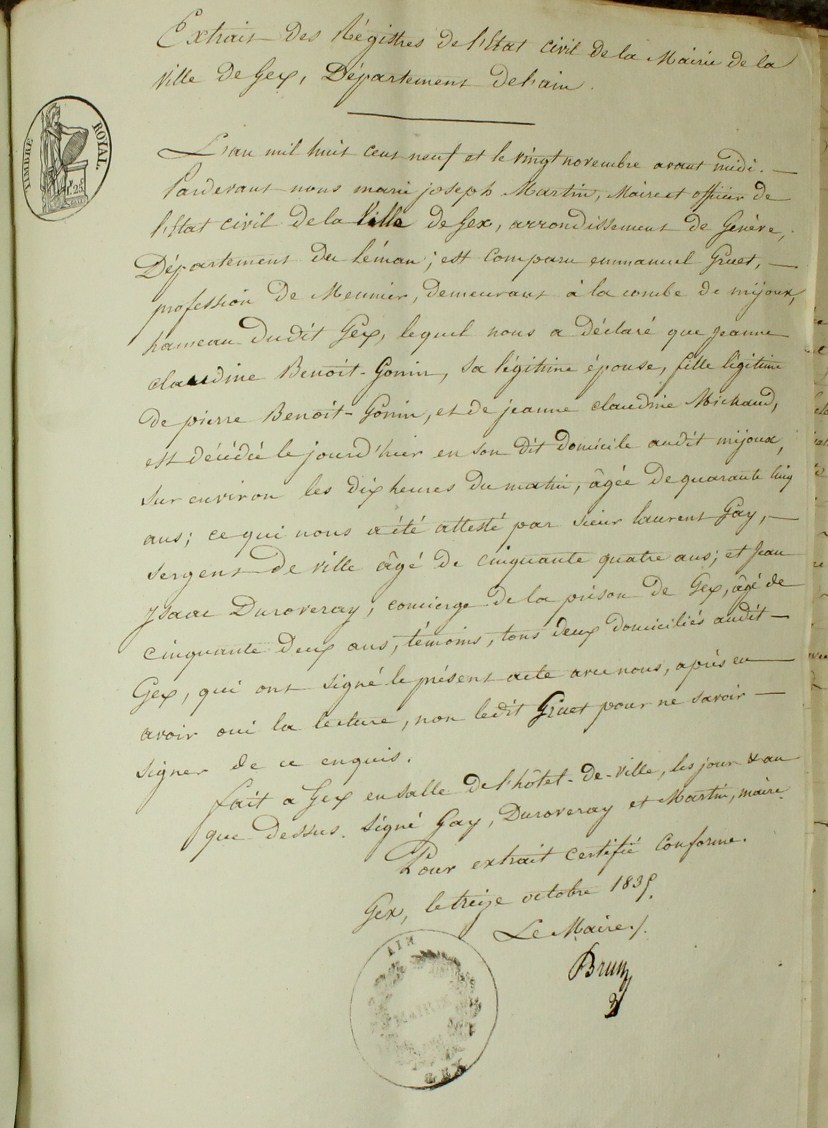 Extrait des Régistres de l'Etat civil de la Mairie de la
ville de Gex, Département de l'ain.
TIMBRE ROYAL.
L'an mil huit cent neuf et le vingt novembre avant midi. —
Pardevant nous marie joseph Martin, Maire et officier de
l'Etat civil de la Ville de Gex, arrondissement de Genève,
Département du léman; est comparu emmanuel Gruet, —
profession de Meunier, demeurant à la combe de mijoux,
hameau dudit Gex, lequel nous a déclaré que jeanne
claudine Benoit-Gonin, sa légitime épouse, fille légitime
de pierre Benoit-Gonin, et de jeanne claudine Michaud,
est décédée le jourd'hui en son dit domicile audit mijoux,
sur environ les dix heures du matin, âgée de quarante cinq
ans; ce qui nous a été attesté par sieur laurent Gay, —
sergent de ville âgé de cinquante quatre ans; et jean
ysaac Duroveray, concierge de la prison de Gex, âgé de
cinquante deux ans, témoins, tous deux domiciliés audit —
Gex, qui ont signé le présent acte avec nous, après en —
avoir oui la lecture, non ledit Gruet pour ne savoir —
signer de ce enquis.
fait a Gex en salle de l'hôtel-de-ville, les jour & an
que dessus. signé Gay, Duroveray et Martin, maire.
Pour extrait certifié conforme.
Gex, le treize octobre 1835.
Le Maire./.
Brun
AIN
MAIRIE
GEX